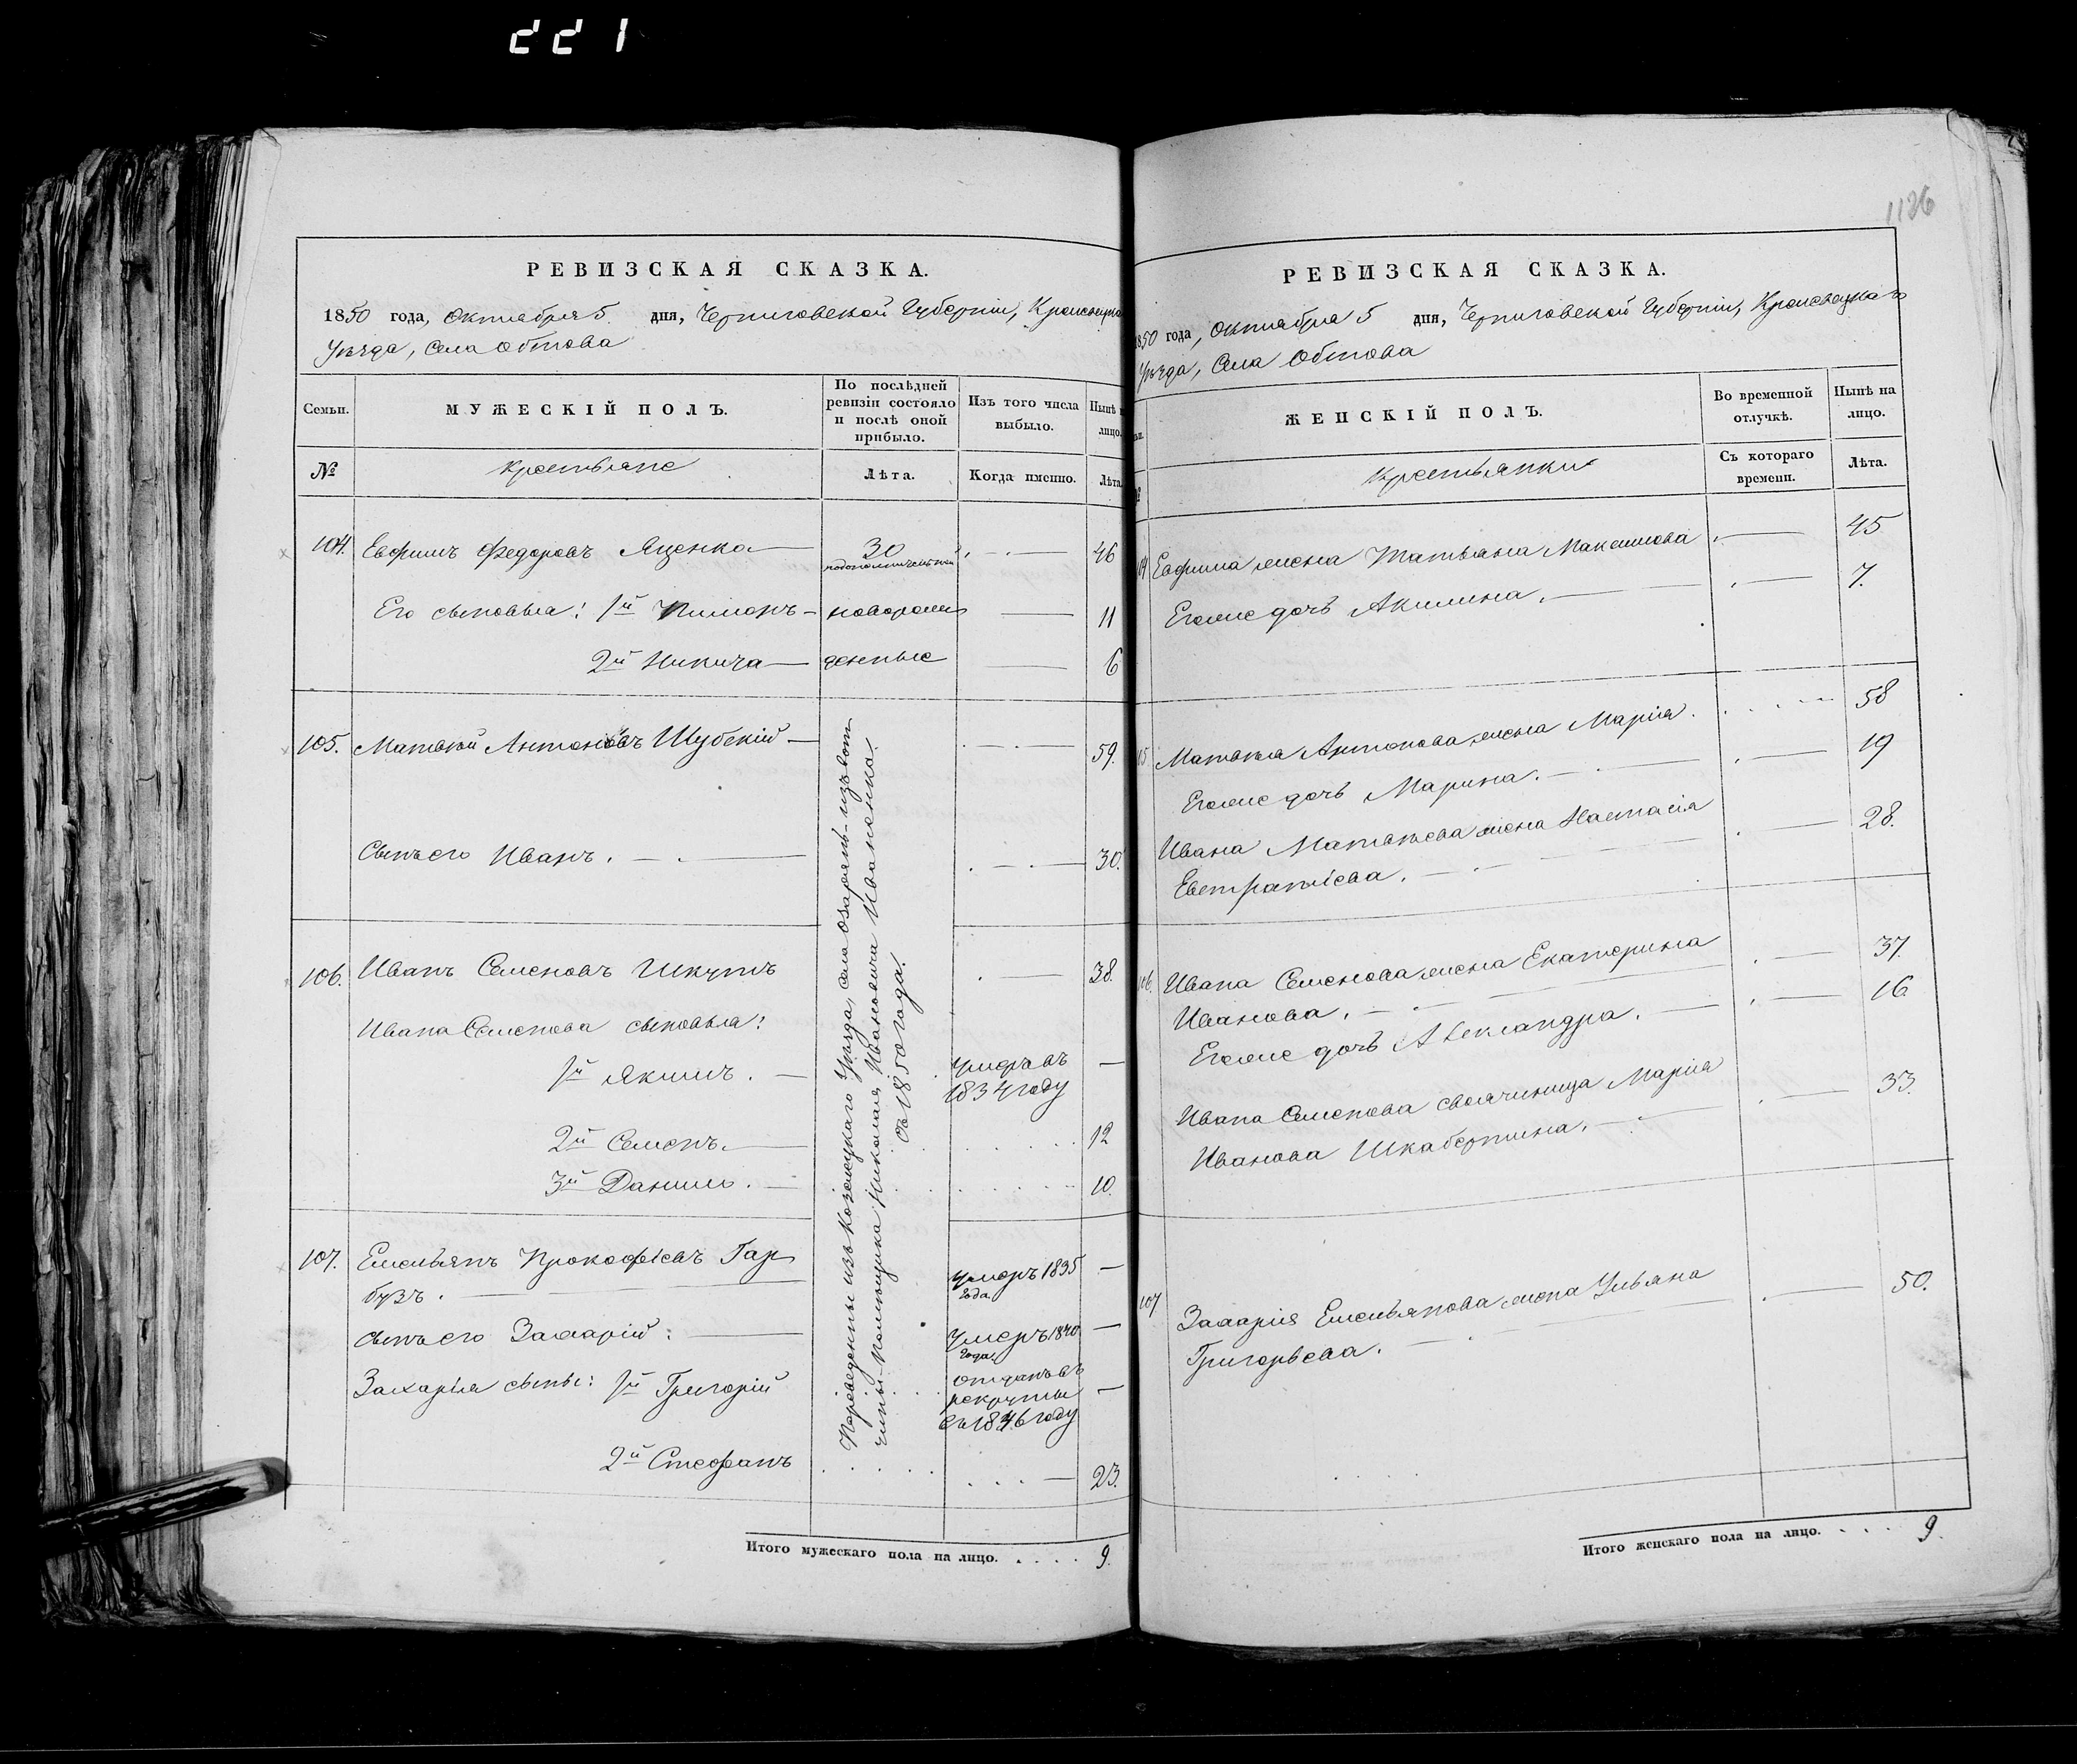 221
1126
РЕВИЗСКАЯ СКАЗКА.
1850 года, Октября 5 дня, Черниговской Губернии,
Уѣзда, Села Обтова
Семьи.
МУЖЕСКІЙ ПОЛЪ.
По послѣдней ревизіи состояло и послѣ оной прибыло.
Изъ того числа выбыло.
Нынѣ на лицо.
№
Крестьяне
Лѣта.
Когда именно.
Лѣта.
104. Евфимъ Федоровъ Яценко 30 46
Его сыновья: 1й Пименъ новорож 11
2й Никита денные 6
105. Матвѣй Антоновъ Шубскій 59.
Сынъ его Иванъ. 30.
106. Иванъ Семеновъ Шкутъ 38.
Ивана Семенова сыновья:
1й Якимъ. Умеръ въ 1834 году —
2й Семенъ. 12
3й Данило. 10.
107. Емельянъ Прокофіевъ Гар
бузъ. Умеръ 1835 года —
Сынъ его Захарій: Умеръ 1840 года —
Захарія сыны: 1й Григорій отданъ въ рекруты въ 1846 году —
2й Стефанъ 23.
Переведенны изъ Козелецкаго Уѣзда, села
помѣщика Николая Ивановича Иваненка
съ 1850 года.
Итого мужескаго пола на лицо. . . . . 9.
РЕВИЗСКАЯ СКАЗКА.
1850 года, Октября 5 дня, Черниговской Губерніи, Кролевецкаго
Уѣзда, Села Обтова
ЖЕНСКІЙ ПОЛЪ.
Во временной отлучкѣ.
Нынѣ на лицо.
Крестьянки
Съ котораго времени.
Лѣта.
Евфима жена Татьяна Максимова 45
Егоже дочь Акилина. 7.
Матвѣя Антонова жена Марія. 58
Егоже дочь Марина. 19
Ивана Матвѣева жена Настасія
Евстратіева. 28.
106. Ивана Семенова жена Екатерина
Иванова. 37.
Егоже дочь Александра. 16.
Ивана Семенова своячиница Марія
Иванова Шкабертина. 33.
107 Захарія Емельянова жена Ульяна
Григорьева. 50.
Итого женскаго пола на лицо. . . . 9.